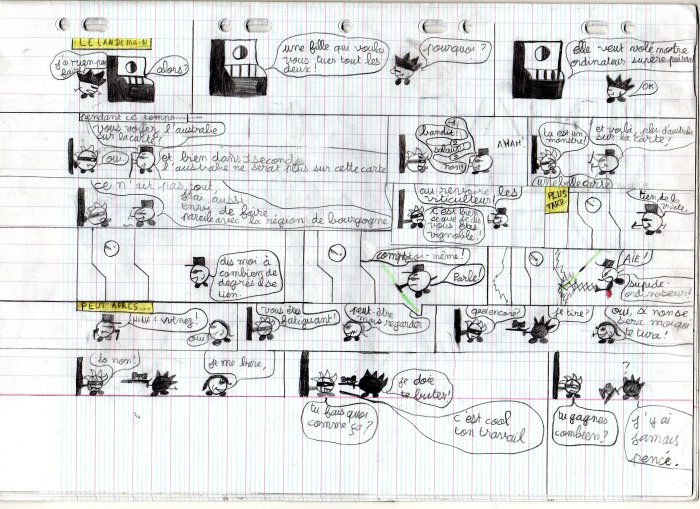 LE LANDEMAIN
alors?
une fille qui voulai
vous tuer tout les
deux!
pourquoi?
elle veut volé notre
ordinateur supère puissant
OK
Pendant ce temps....
vous voyer l'australie
sur la carte!
oui
et bien dans 3 secondes
l'australie ne sera plus sur cette carte
bandit!
salaud
non!
AHAH!
tu est un
monstre!
et voilà, plus d'australie
sur la carte!
une belle carte
ce n'ait pas tout,
j'ai aussi
envy de faire
pareile avec la région de bourgogne
au renvoire les
viticulteur!
c'est bien
vous êtes
vignoble!
PLUS
TARD..
tien, de la
visite.
dis moi à
combien de
degrès il se
tien.
compte toi-même!
Parle!
AÏE!
stupide
ordinateur!
PEUT APRES....
NINA! venez!
oui
vous êtes
fatiguant!
peut-être
mais regarder
quoi encore?
je tire?
oui, si non se
sera moi qui
te tura!
ho non!
je me tire,
je doie
te buter!
tu fais quoi
comme ça?
c'est cool
ton travail
?
tu gagnes
combien?
j'y ai
jamais
pencé.